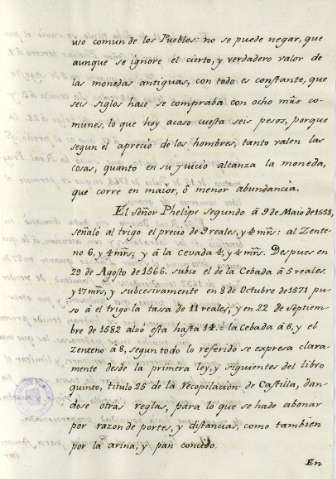 uso comun de los Pueblos: no se puede negar, que
aunque se ignore el cierto, y verdadero valor de
las monedas antiguas, con todo es constante, que
seis siglos hace se compraba con ocho mr̃s co-
munes, lo que hoy acaso cuesta seis pesos, porque
segun el aprecio de los hombres, tanto valen las
cosas, quanto en su juicio alcanza la moneda,
que corre en maior, ó menor abundancia.
El Señor Phelipe segundo á 9 de Maio de 1558,
señaló al trigo el precio de 9 reales, y 4 mr̃s: al Zente-
no 6, y 4 mr̃s, y á la cevada 4, y 4 mr̃s. Despues en
29 de Agosto de 1566. subió el de la Cebada á 5 reales
y 17 mr̃s, y subcesivamente en 8 de Octubre de 1571 pu-
so á el trigo la tasa de 11 reales, y en 22 de Septiem-
bre de 1582 alzó esta hasta 14. á la cebada á 6, y el
Zenteno á 8, segun todo lo referido se expresa clara-
mente desde la primera ley, y siguientes del libro
quinto, titulo 25 de la recopilación de Castilla, dan-
dose otras reglas, para lo que se ha de abonar
por razon de portes, y distancias, como tambien
por la arina, y pan concido.
En